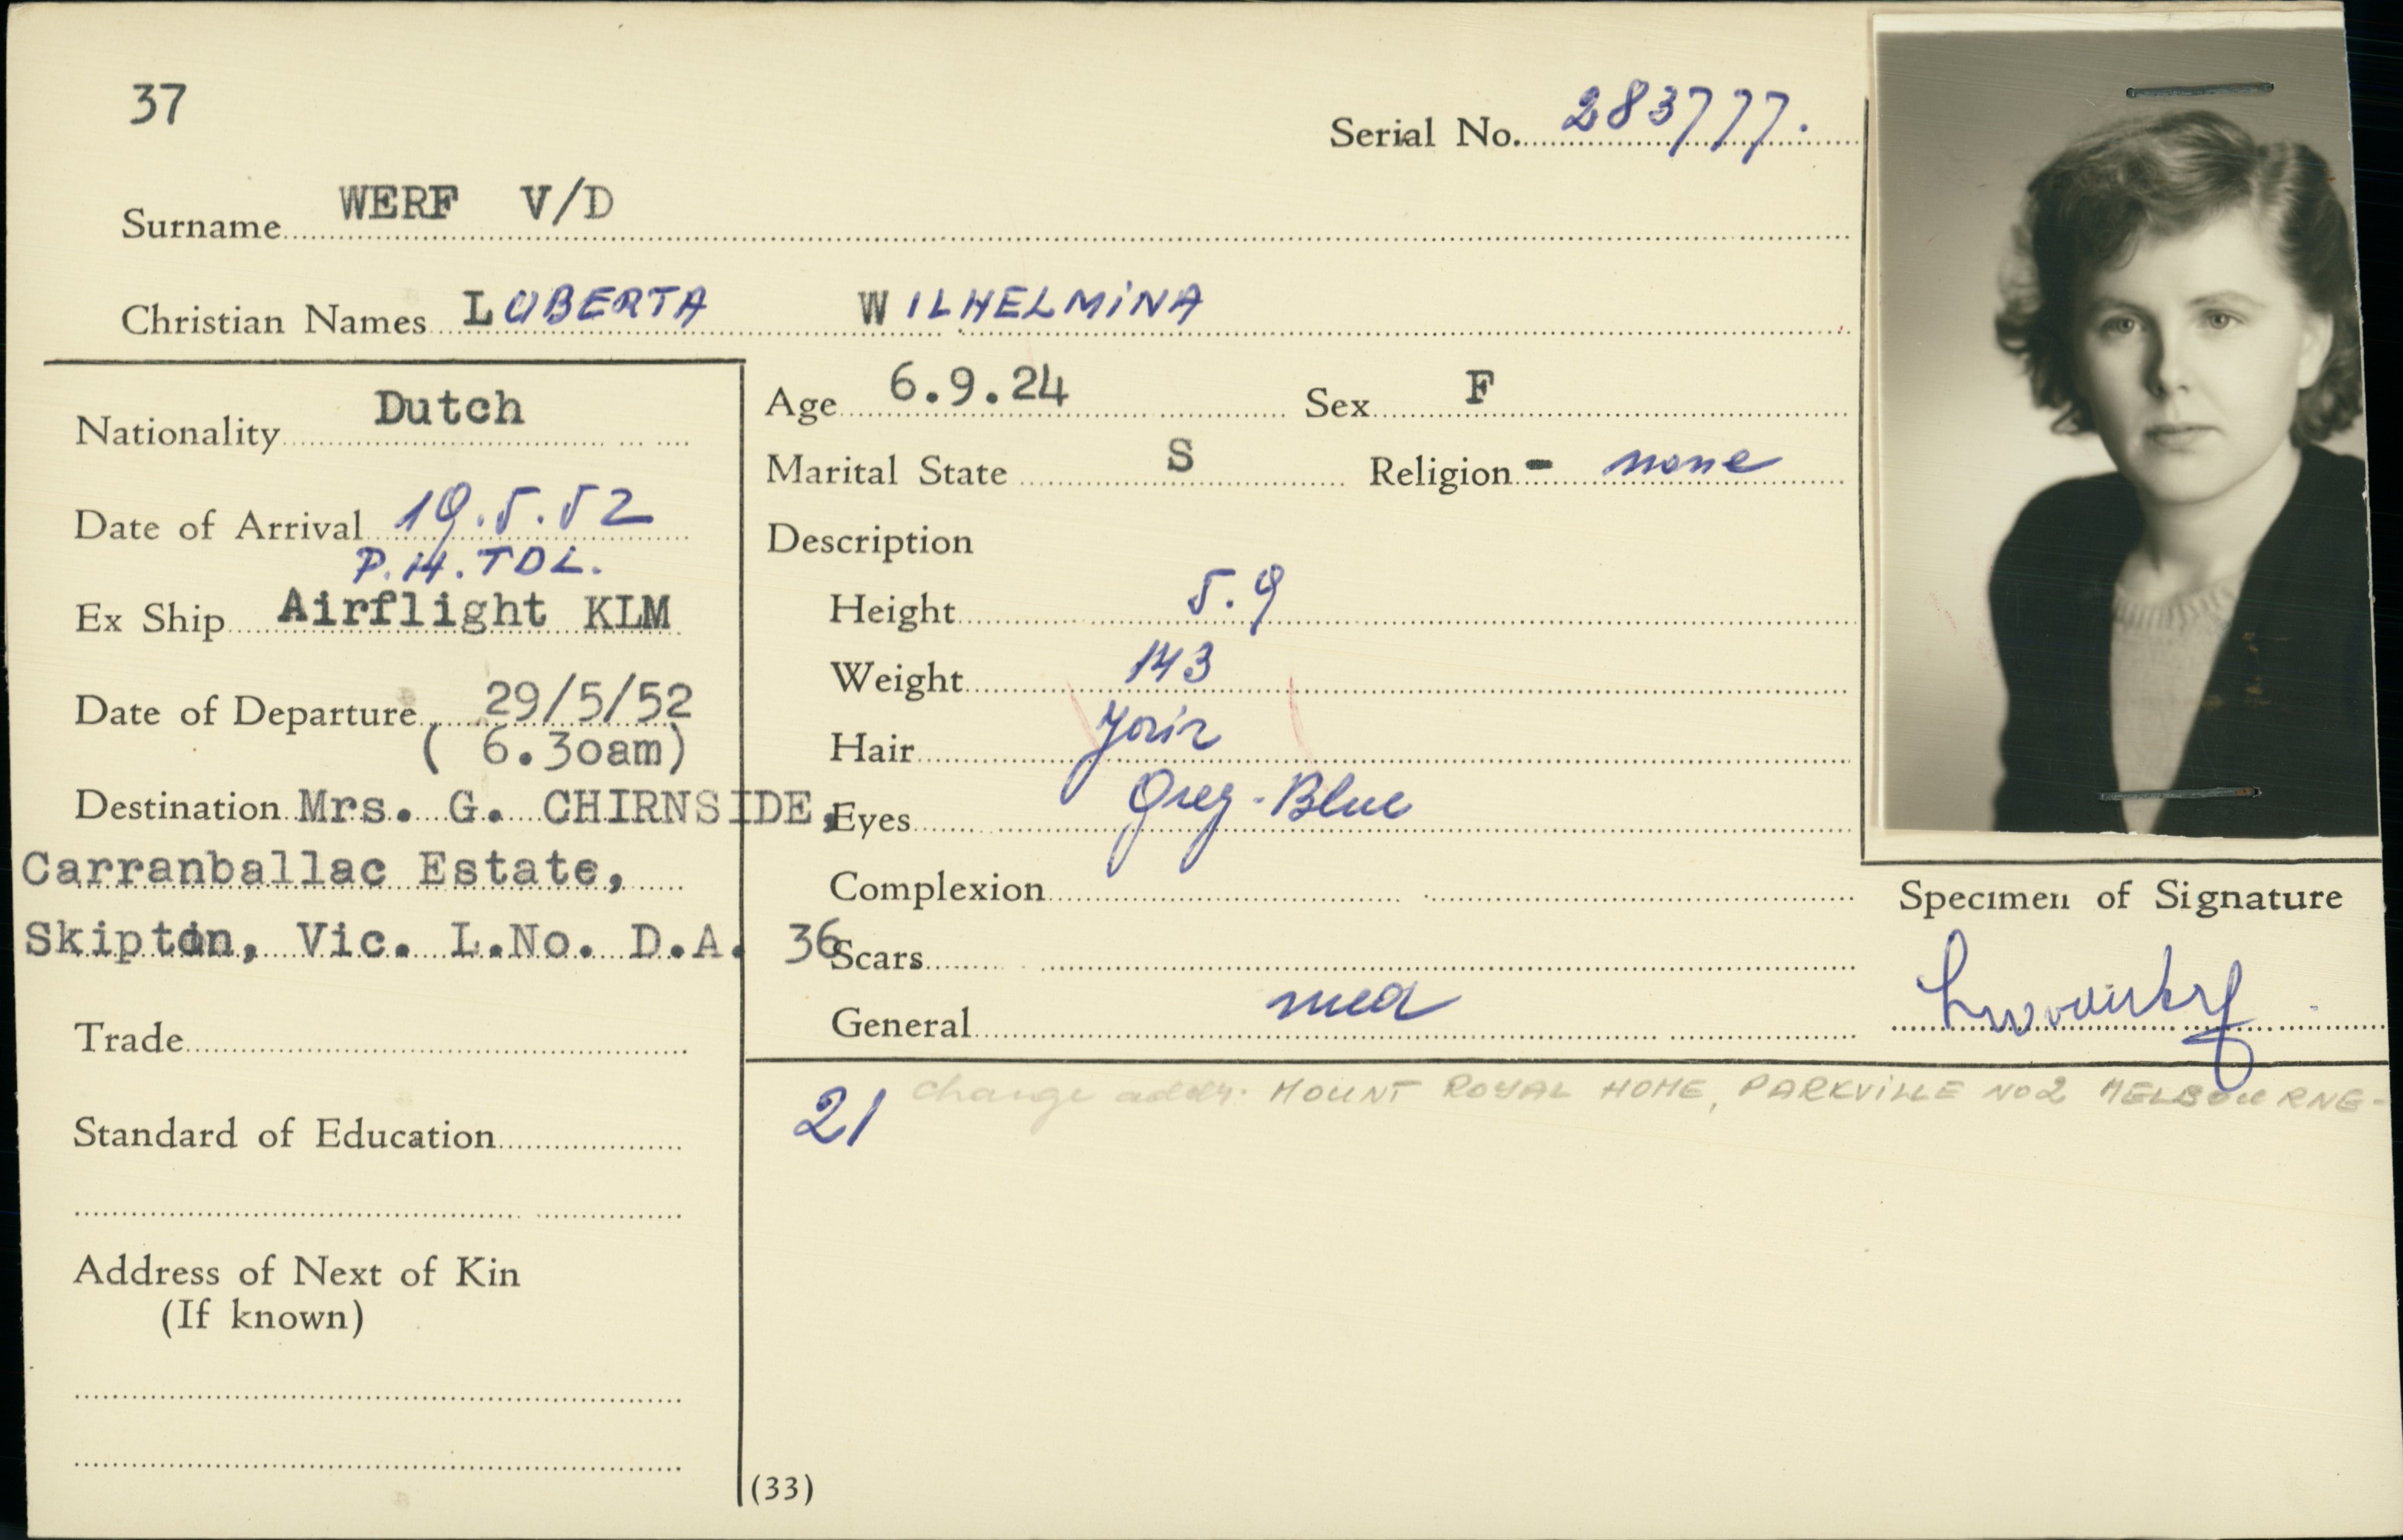 37
Serial No. 283777.
Surname WERF V/D
Christian Names LUBERTA WILHELMINA
Nationality Dutch
Date of Arrival 19.5.52
P.H.TDL.
Ex Ship Airflight KLM
Date of Departure 29/5/52
( 6.30am)
Destination Mrs. G. CHIRNSIDE,
Carranballac Estate,
Skipton, Vic. L.No. D.A. 36
Trade
Standard of Education
Address of Next of Kin
(If known)
Age 6.9.24 Sex F
Marital State S Religion - none
Description
Height 5.9
Weight 143
Hair
Eyes Grey-Blue
Complexion
Scars
General med
Specimen of Signature
21 Change addr. MOUNT ROYAL HOME, PARKVILLE NO2 MELBOURNE-
(33)